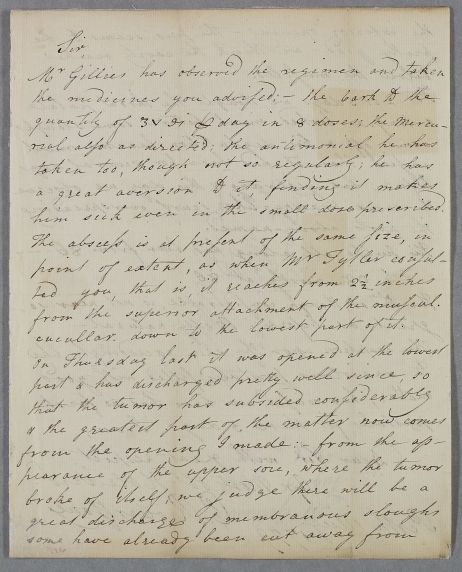 Sir
Mr Gillies has observed the regimen and taken
the medicines you advised; - the bark to the
quantity of ℥v ℥i ⅌ day in 8 doses; the Mercu-
rial also as directed; the antimonial he has
taken too, though not so regularly; he has
a great aversion to it finding it makes
him sick even in the small dose prescribed.
The abscess is at present of the same size, in
point of extent, as when Mr Tytler consul-
ted you, that is, it reaches from 2½ inches
from the superior attachment of the muscul.
cucullar. down to the lowest part of it.
On Thursday last it was opened at the lowest
part & has discharged pretty well since, so
that the tumor has subsided considerably
& the greatest part of the matter now comes
from the opening I made: - from the ap-
pearance of the upper sore, where the tumor
broke of itself, we judge there will be a
great discharge of membranous sloughs
some have already been cut away from